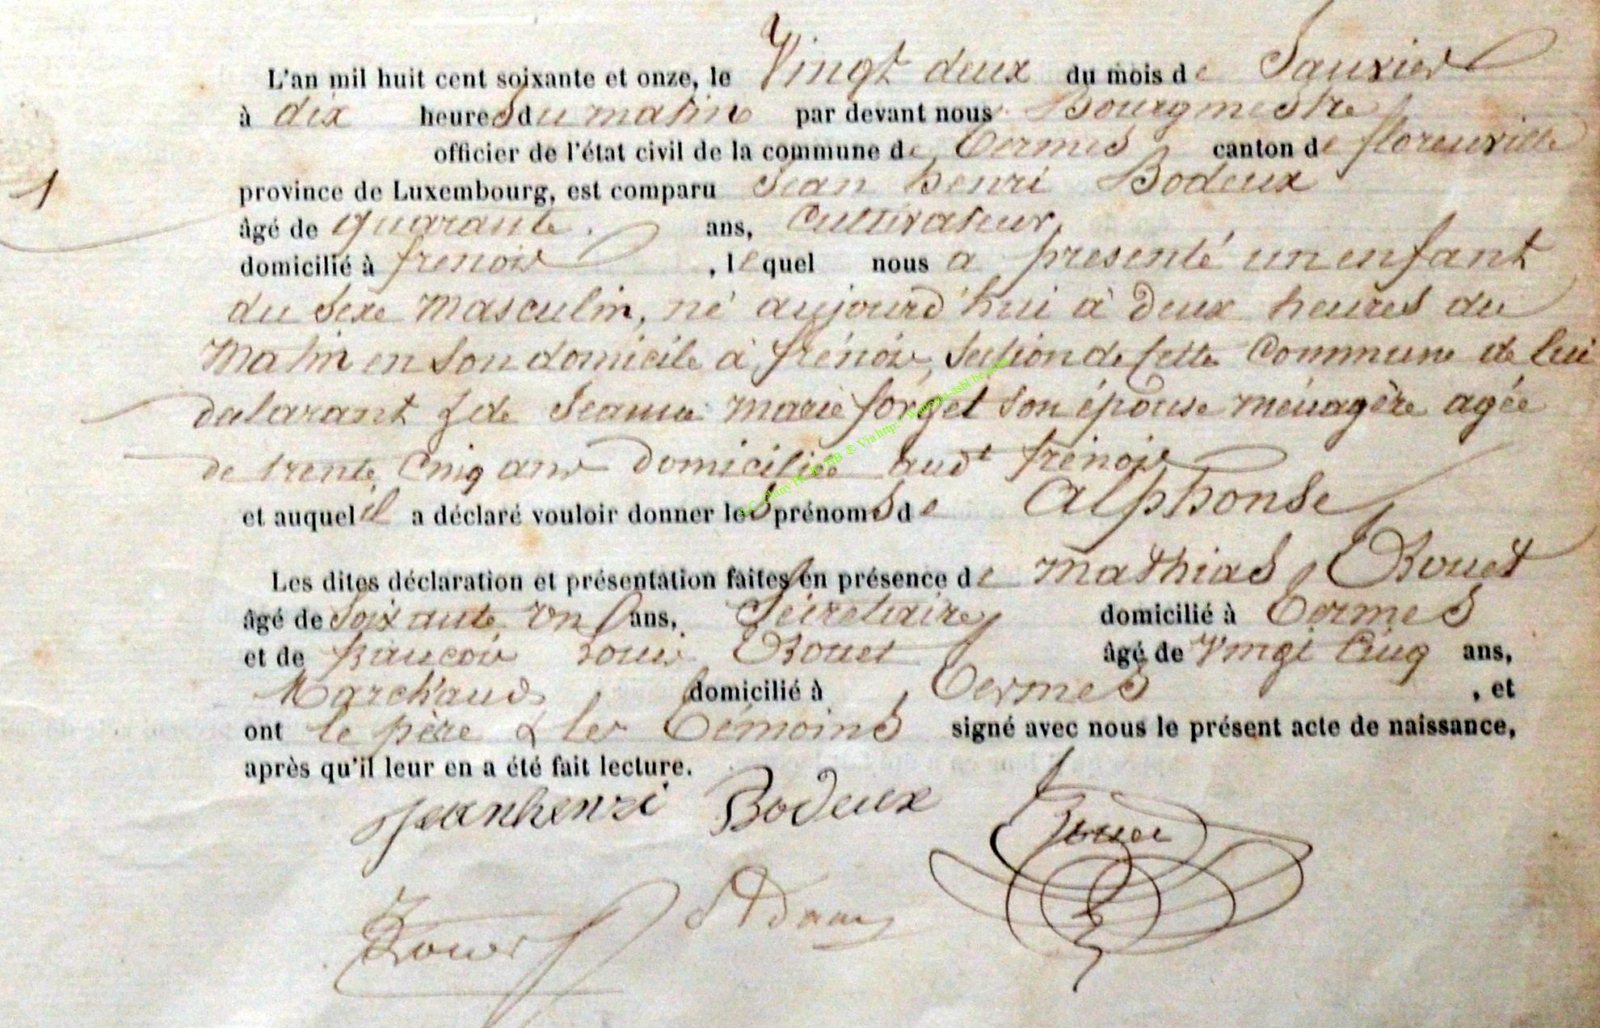 L'an mil huit cent soixante et onze, le Vingt deux du mois de Janvier
à dix heures du matin par devant nous Bourgmestre
officier de l'état civil de la commune de Termes canton de florenville
1
province de Luxembourg, est comparu Jean henri Bodeux
âgé de quarante ans, Cultivateur,
domicilié à frenois, lequel nous a présenté un enfant
du sexe masculin, né aujourd'hui à deux heures du
matin en son domicile à frénois, section de cette Commune de lui
déclarant & de Jeanne marie forget son épouse ménagère agée
de trente cinq ans domiciliée audt frénois
et auquel il a déclaré vouloir donner les prénoms de Alphonse
Les dites déclaration et présentation faites en présence de mathias Rouet
âgé de Soixante un ans, Sécretaire domicilié à Termes
et de francois Louis Rouet âgé de Vingt Cinq ans,
Marchand, domicilié à Termes, et
ont le père & les témoins signé avec nous le présent acte de naissance,
après qu'il leur en a été fait lecture.
Jeanhenri Bodeux
Rouet